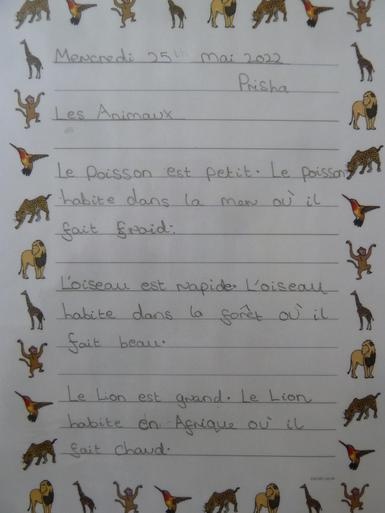 Mercredi 25th mai 2022
Prisha
Les Animaux
Le poisson est petit. Le poisson
habite dans la mer où il
fait froid.
L'oiseau est rapide. L'oiseau
habite dans la forêt où il
fait beau.
Le Lion est grand. Le Lion
habite en Afrique où il
fait chaud.